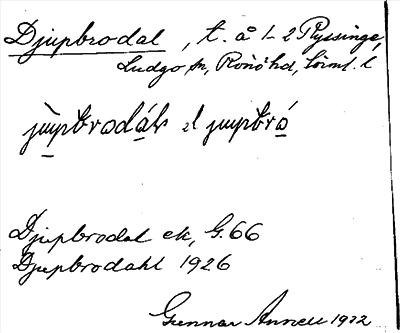 Djupbrodal, t. å 1-2 Ryssinge,
Ludgo sn, Rönö hd, Söml. l.
jùpbrodáls el jupbró
Djupbrodal ek, G. 66
Djupbrodahl 1926
Gunnar Annell 1932